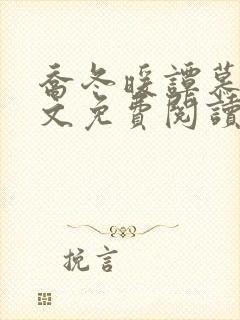 喬冬暖譚慕
文免費閱讀
挽言